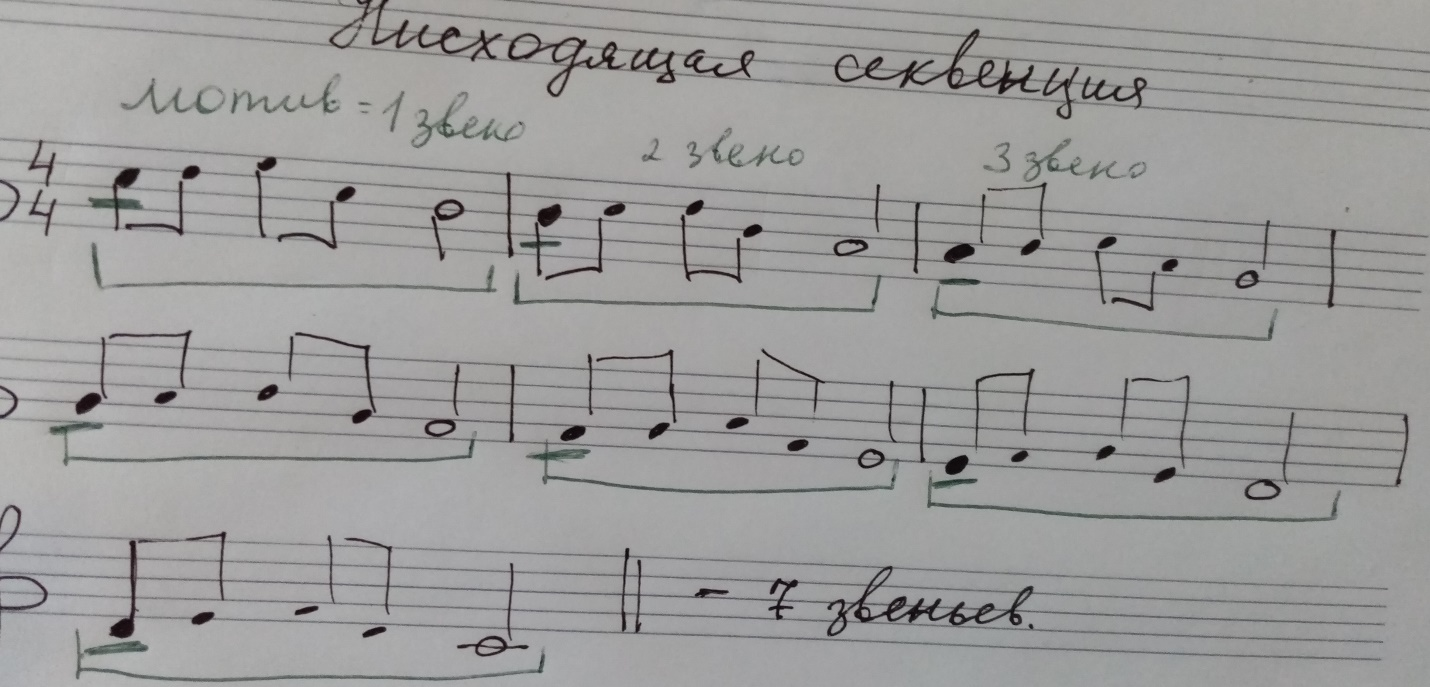 Нисходящая секвенция
мотив = 1 звено 2 звено 3 звено
4
4
- 7 звеньев.